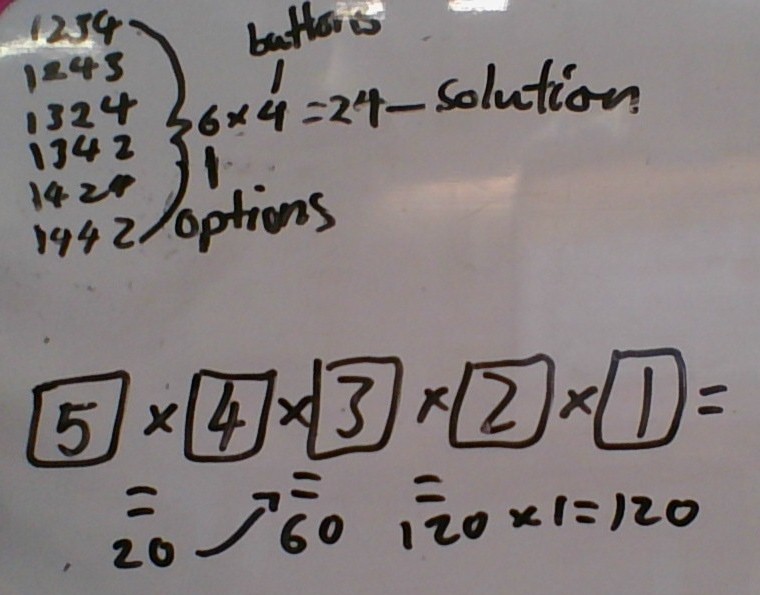 1234
1243
1324
1342
1424
1442
buttons
6 × 4 = 24 – solution
options
5 × 4 × 3 × 2 × 1 =
= = =
20 60 120 × 1 = 120